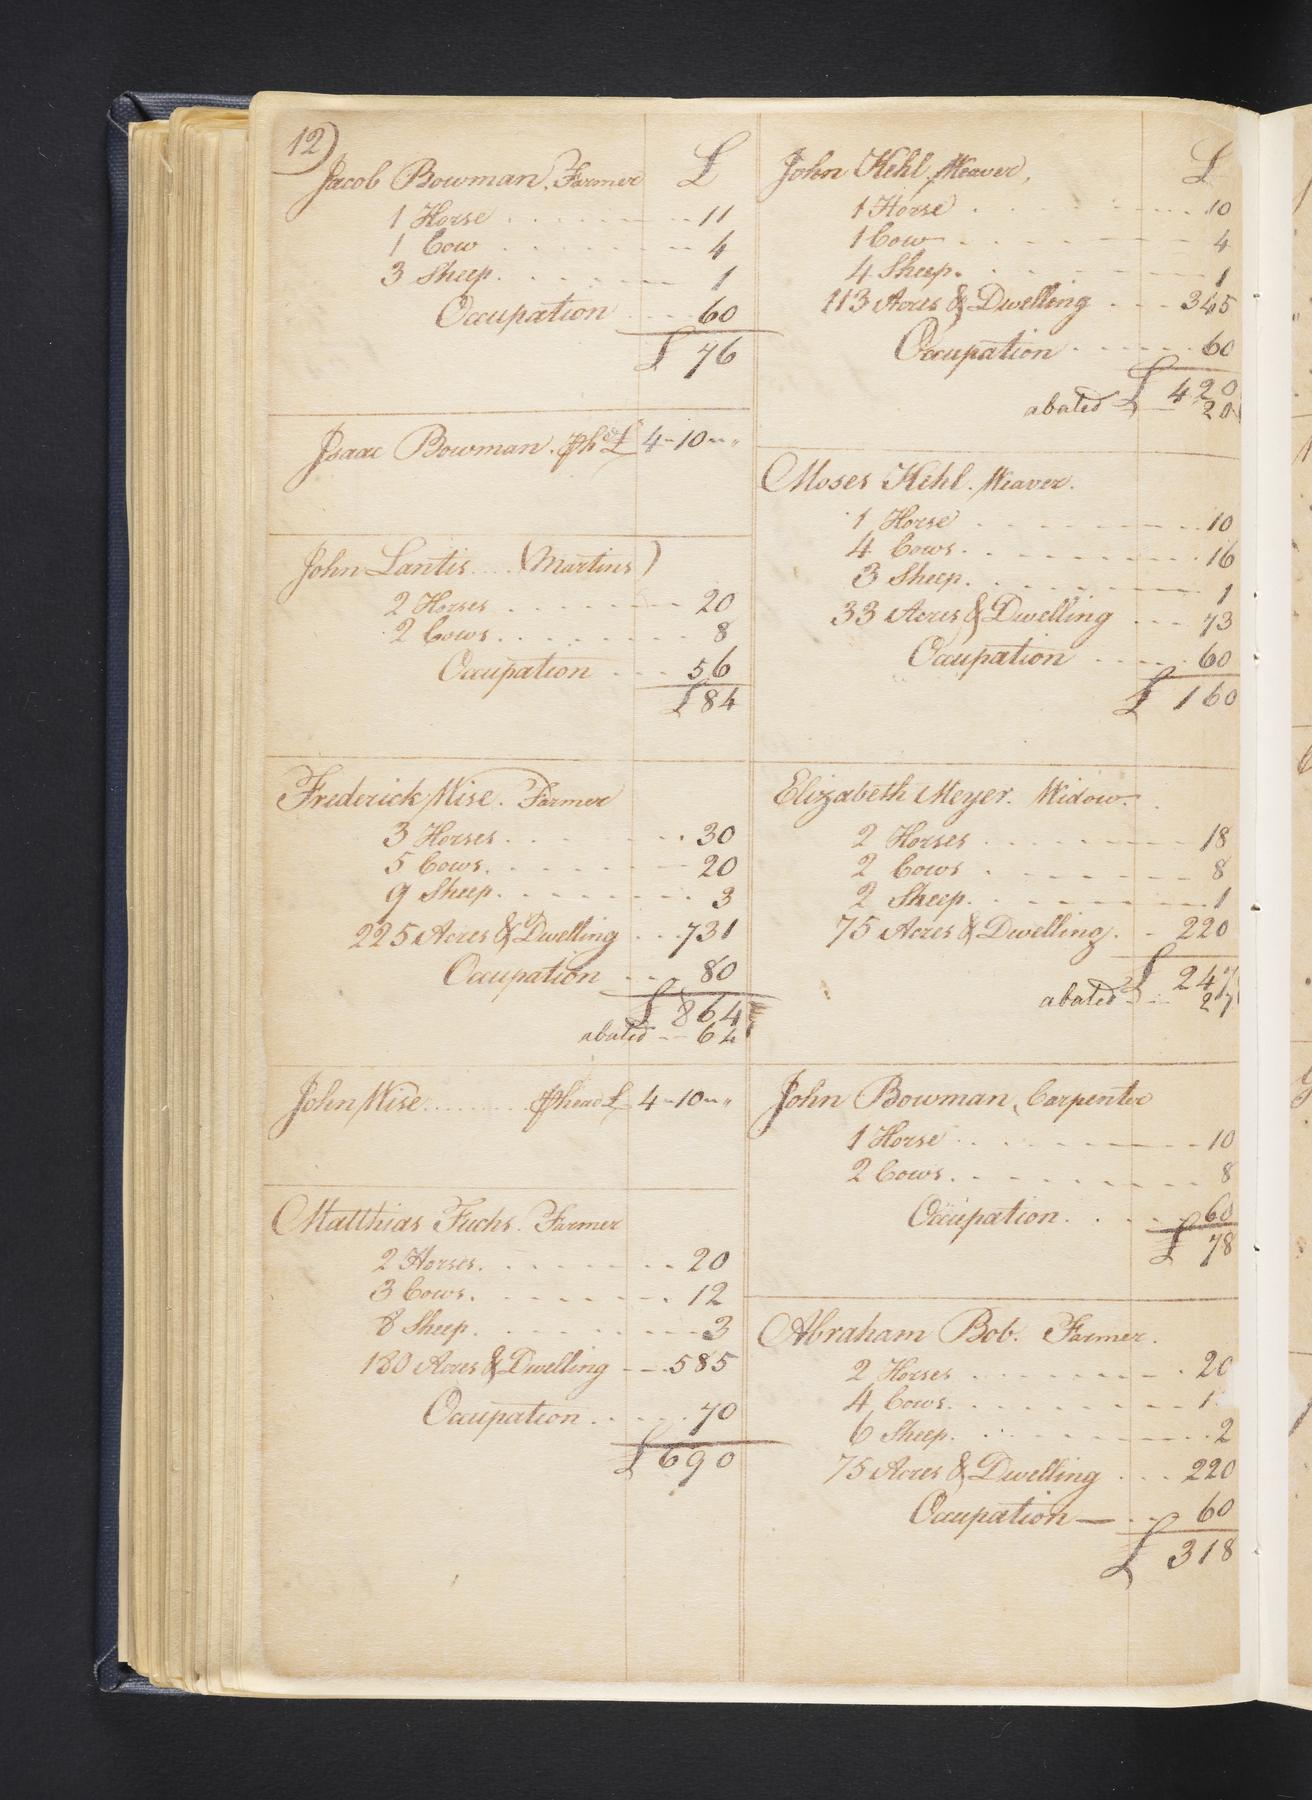 12)
Jacob Bowman. Farmer £
1 Horse 11
1 Cow 4
3 Sheep. 1
Occupation 60
£ 76
Isaac Bowman. £ 4-10-"
John Lantis (Martins)
2 Horses 20
2 Cows. 8
Occupation 56
£ 84
Frederick Wise. Farmer
3 Horses. 30
5 Cows. 20
9 Sheep. 3
225 Acres & Dwelling 731
Occupation 80
£ 864
abated 64
John Wise phead £ 4-10-"
Matthias Fuchs. Farmer
2 Horses. 20
3 Cows. 12
8 Sheep. 3
180 Acres & Dwelling 585
Occupation 70
£ 690
John Kehl, Weaver, £
1 Horse 10
1 Cow 4
4 Sheep. 1
113 Acres & Dwelling 345
Occupation 60
£ 420
abated 20
Moses Kehl. Weaver.
1 Horse 10
4 Cows. 16
3 Sheep. 1
33 Acres & Dwelling 73
Occupation 60
£ 160
Elizabeth Meyer. Widow.
2 Horses 18
2 Cows 8
2 Sheep. 1
75 Acres & Dwelling. 220
£ 247
abated 27
John Bowman, Carpenter
1 Horse 10
2 Cows. 8
Occupation. 60
£ 78
Abraham Bob. Farmer.
2 Horses 20
4 Cows. 1
6 Sheep. 2
75 Acres & Dwelling 220
Occupation 60
£ 318